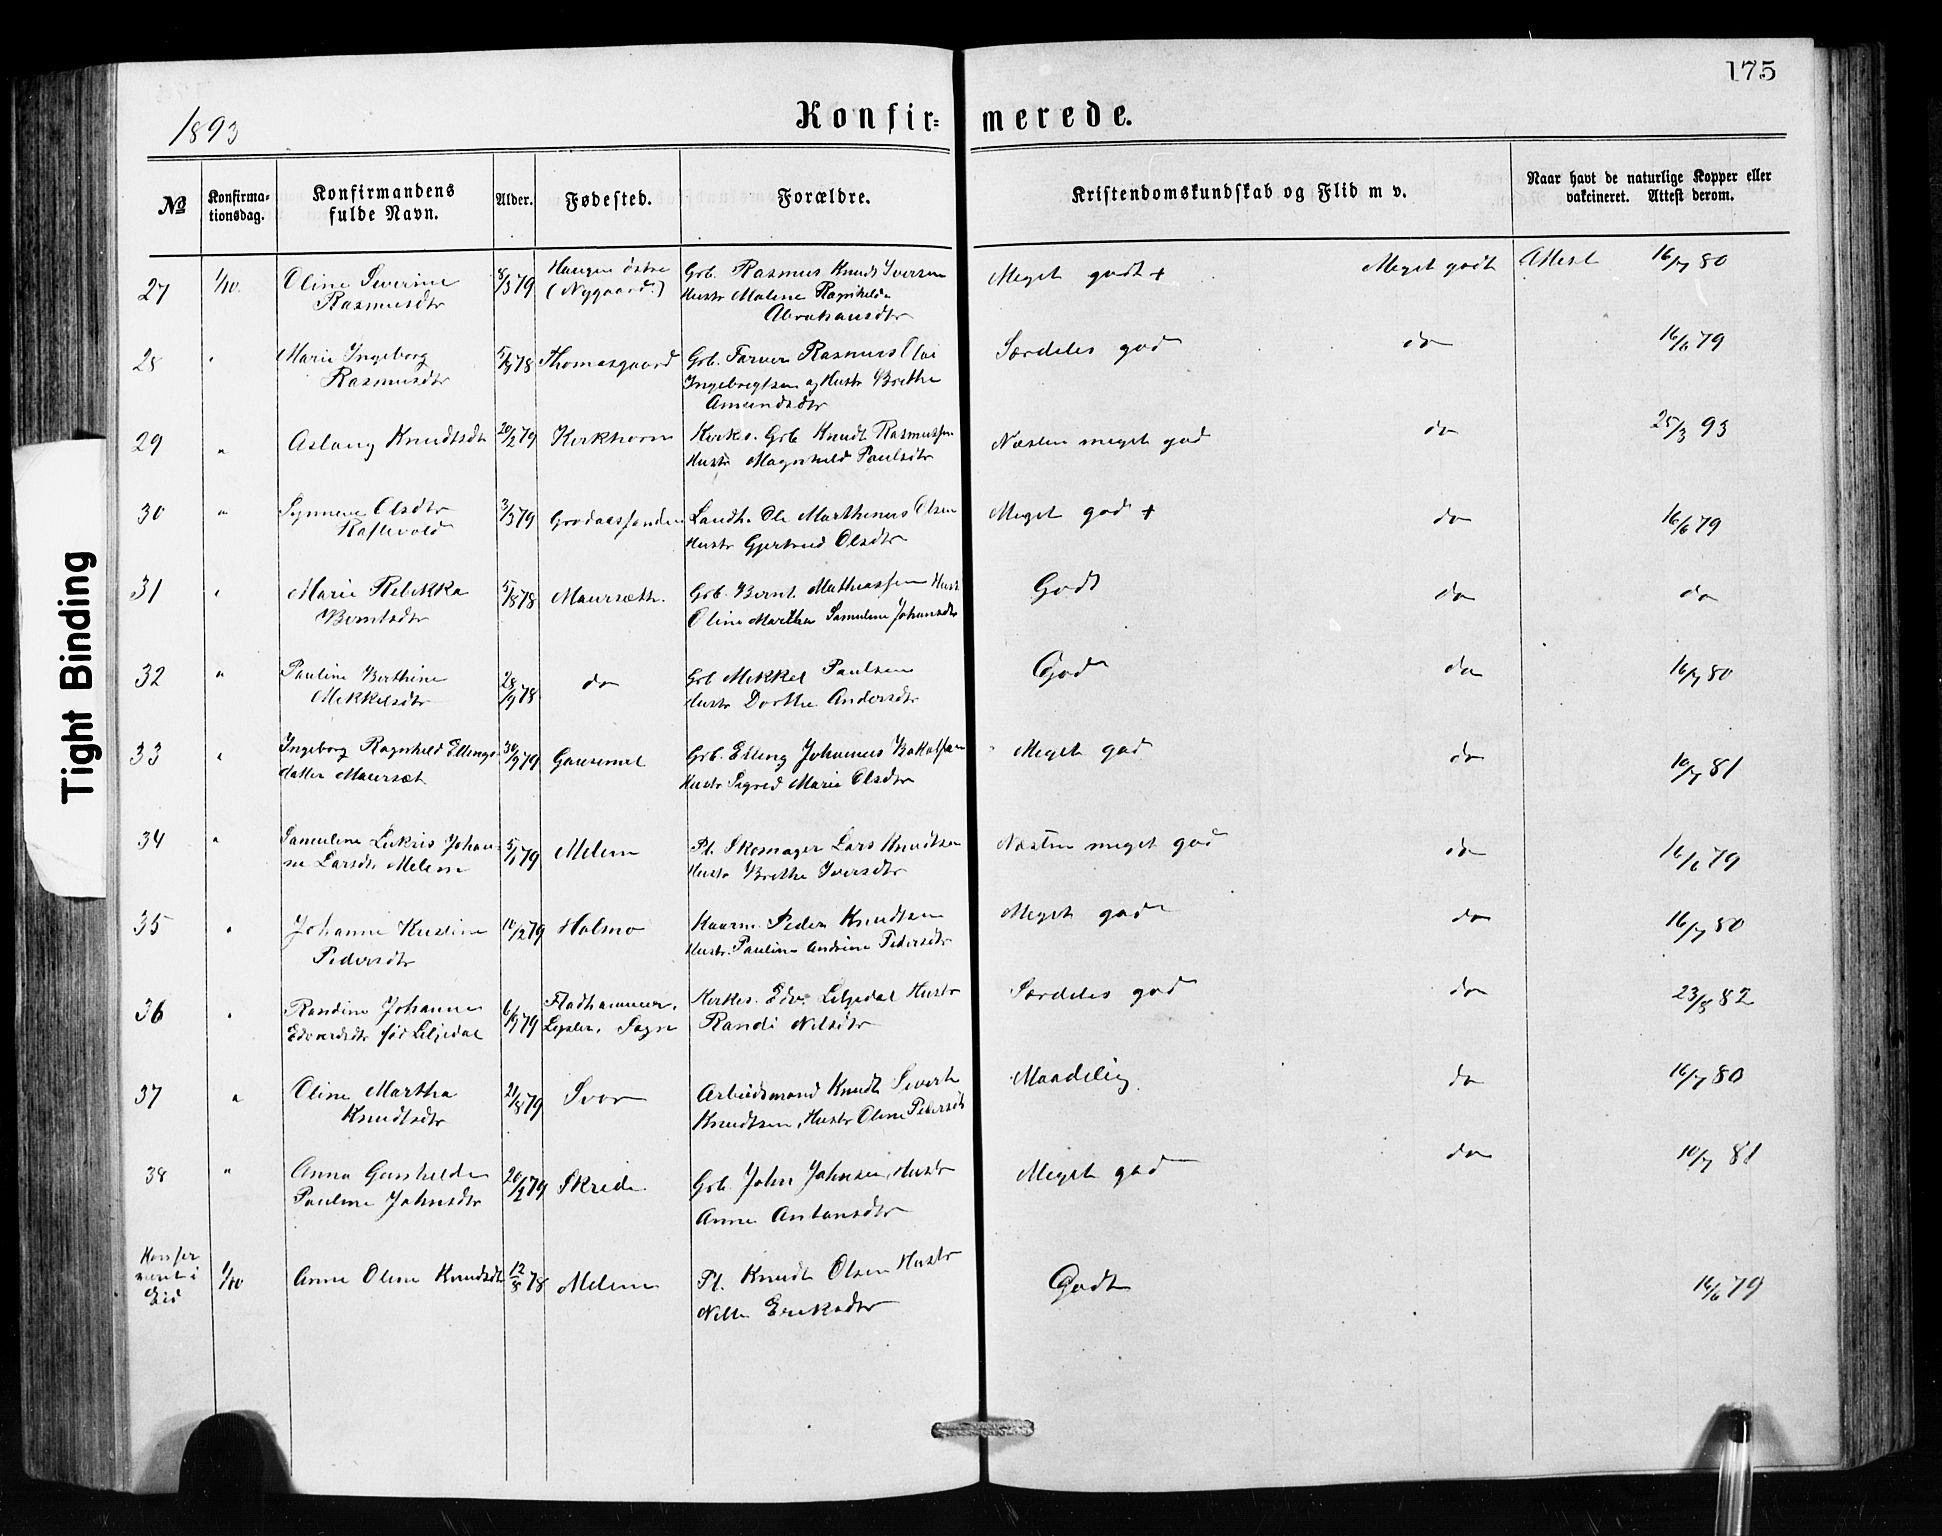 175
1893
Konfir= merede.
№ Konfirma-tionsdag. Konfirmandens fulde Navn. Alder. Fødested. Forældre. Kristendomskundskab og Flid m v. Naar havt de naturlige Kopper eller vakcineret. Attest derom.
27 1/10. Oline Severine 8/3 79 Haugen østre Grb. Rasmus Knudt Iversen Meget godt + Meget godt Attest 16/7 80
Rasmusdtr (Nygaard.) Hustr Malene Ragnhilda
Abrahamsdtr
28 " Marie Ingeborg 5/9 78 Thomasgaard Grb. Farver Rasmus Olai Særdeles god do 16/6 79
Rasmusdtr Ingebregtsen og Hustr Brethe
Amundsdtr
29 " Aslaug Knudtsdtr 20/2 79 Kirkhorn Kirkes. Grb Knudt Rasmussen Næsten meget god do 25/3 93
Hustr Magnhild Paulsdtr
30 " Synneve Olsdtr 3/3 79 Grodaassanden Landh. Ole Marthinus Olsen Meget god + do 16/6 79
Raftevold Hustr Gjertrud Olsdtr
31 " Marie Rebekka 5/8 78 Maursæth. Grb. Bernt Mathiassen Hustr Godt do do
Berntsdtr Oline Martha Samuline Johansdtr
32 " Pauline Berthine 28/9 78 do Grb Mekkel Paulsen God do 16/7 80
Mekkelsdtr Hustr Dorthe Andersdtr
33 " Ingeborg Ragnhild Ellings- 30/9 79 Gausemel Grb. Elling Johannes Meget god do 10/7 81
datter Maursæt Hustr Sigrid Marie Olsdtr
34 " Samuline Johan- 5/1 79 Melem Pl. Skomager Lars Knudtsen Næsten meget god do 16/6 79
ne Larsdtr Melem Hustr Brethe Iversdtr
35 " Johanne Kristine 10/2 79 Holmo Kaarm. Peder Knudtsen Meget god do 16/7 80
Pedersdtr Hustr. Pauline Andrine Pedersdtr
36 " Randine Johanne 6/9 79 Fladhammer, Kirkes. Edv. Liljedal Hustr Særdeles god do 23/8 82
Edvardsdtr Liljedal Sogn Randi Nilsdtr
37 " Oline Martha 21/8 79 Svor Arbeidsmand Knudt Sivert Maadelig. do 16/7 80
Knudtsdtr Knudtsen, Hustr Oline Pedersdtr
38 " Anna Gunhilda 20/2 79 Skrede Grb. John Johnsen, Hustr Meget god do 10/7 81
Pauline Johnsdtr Anne Antonsdtr
Konfir
meret i 1/10 Anne Oline Knudsdtr 12/8 78 Melem Pl. Knudt Olsen Hustr Godt 16/6 79
Eid Nille Eriksdtr
Tight Binding